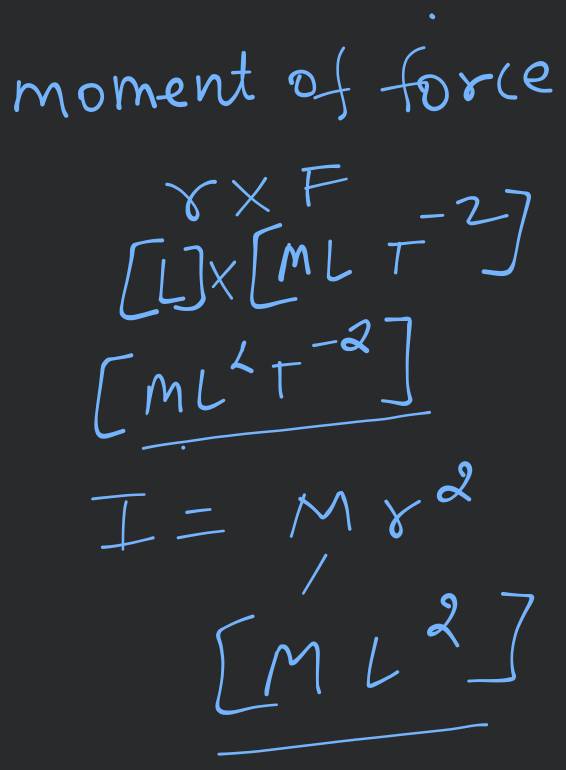 moment of force
r × F
[L] × [ML T⁻²]
[ML²T⁻²]
I = Mr²
[M L²]